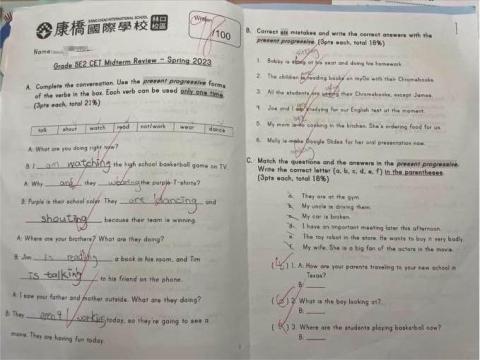 康橋國際學校 林口校區
KANG CHIAO INTERNATIONAL SCHOOL
/100
Name:
Grade 8E2 CET Midterm Review – Spring 2023
A. Complete the conversation. Use the present progressive forms
of the verbs in the box. Each verb can be used only one time.
(3pts each, total 21%)
talk shout watch read not/work wear dance
A: What are you doing right now?
B: I am watching the high school basketball game on TV.
A: Why are they wearing the purple T-shirts?
B: Purple is their school color. They are dancing and
shouting because their team is winning.
A: Where are your brothers? What are they doing?
B: Jim is reading a book in his room, and Tim
is talking to his friend on the phone.
A: I saw your father and mother outside. What are they doing?
B: They aren't working today, so they're going to see a
movie. They are having fun today.
B. Correct six mistakes and write the correct answers with the
present progressive. (3pts each, total 18%)
1. Bobby is at his seat and doing his homework.
2. The children reading books on myOn with their Chromebooks.
3. All the students are their Chromebooks, except James.
4. Joe and I studying for our English test at the moment.
5. My mom is cooking in the kitchen. She's ordering food for us.
6. Molly is make Google Slides for her oral presentation now.
C. Match the questions and the answers in the present progressive.
Write the correct letter (a, b, c, d, e, f) in the parentheses.
(3pts each, total 18%)
a. They are at the gym.
b. My uncle is driving them.
c. My car is broken.
d. I have an important meeting later this afternoon.
e. The toy robot in the store. He wants to buy it very badly.
f. My wife. She is a big fan of the actors in the movie.
( ) 1. A: How are your parents traveling to your new school in
Texas?
B:
( ) 2. What is the boy looking at?
B:
( ) 3. Where are the students playing basketball now?
B: